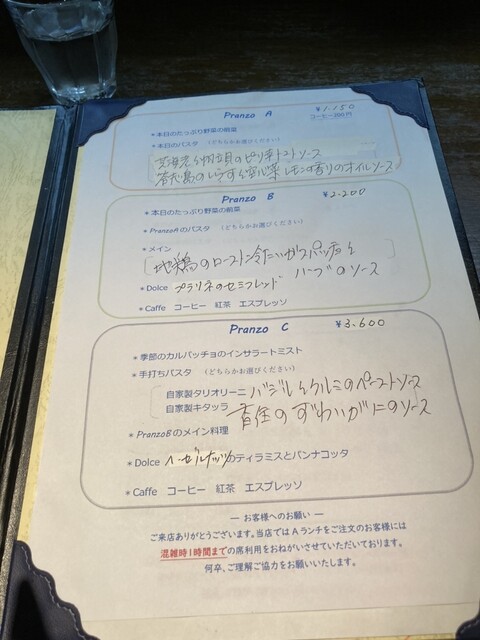 Pranzo A ¥1.150
コーヒー200円
*本日のたっぷり野菜の前菜
*本日のパスタ (どちらかお選びください)
北海 のピリ辛トマトソース
答志島のしらすと 菜 レモンの香りのオイルソース
Pranzo B ¥2.200
*本日のたっぷり野菜の前菜
*PranzoAのパスタ (どちらかお選びください)
*メイン
地鶏のロースト 冷たいガスパッチョと
ハーブのソース
*Dolce プラリネのセミフレッド
*Caffe コーヒー 紅茶 エスプレッソ
Pranzo C ¥3.600
*季節のカルパッチョのインサラートミスト
*手打ちパスタ (どちらかお選びください)
自家製タリオリーニ バジルとクルミのペーストソース
自家製キタッラ 香住のずわいがにのソース
*PranzoBのメイン料理
*Dolce ヘーゼルナッツのティラミスとパンナコッタ
*Caffe コーヒー 紅茶 エスプレッソ
― お客様へのお願い ―
ご来店ありがとうございます。当店では A ランチをご注文のお客様には
混雑時1時間までの席利用をおねがいさせていただいております。
何卒、ご理解ご協力をお願いいたします。